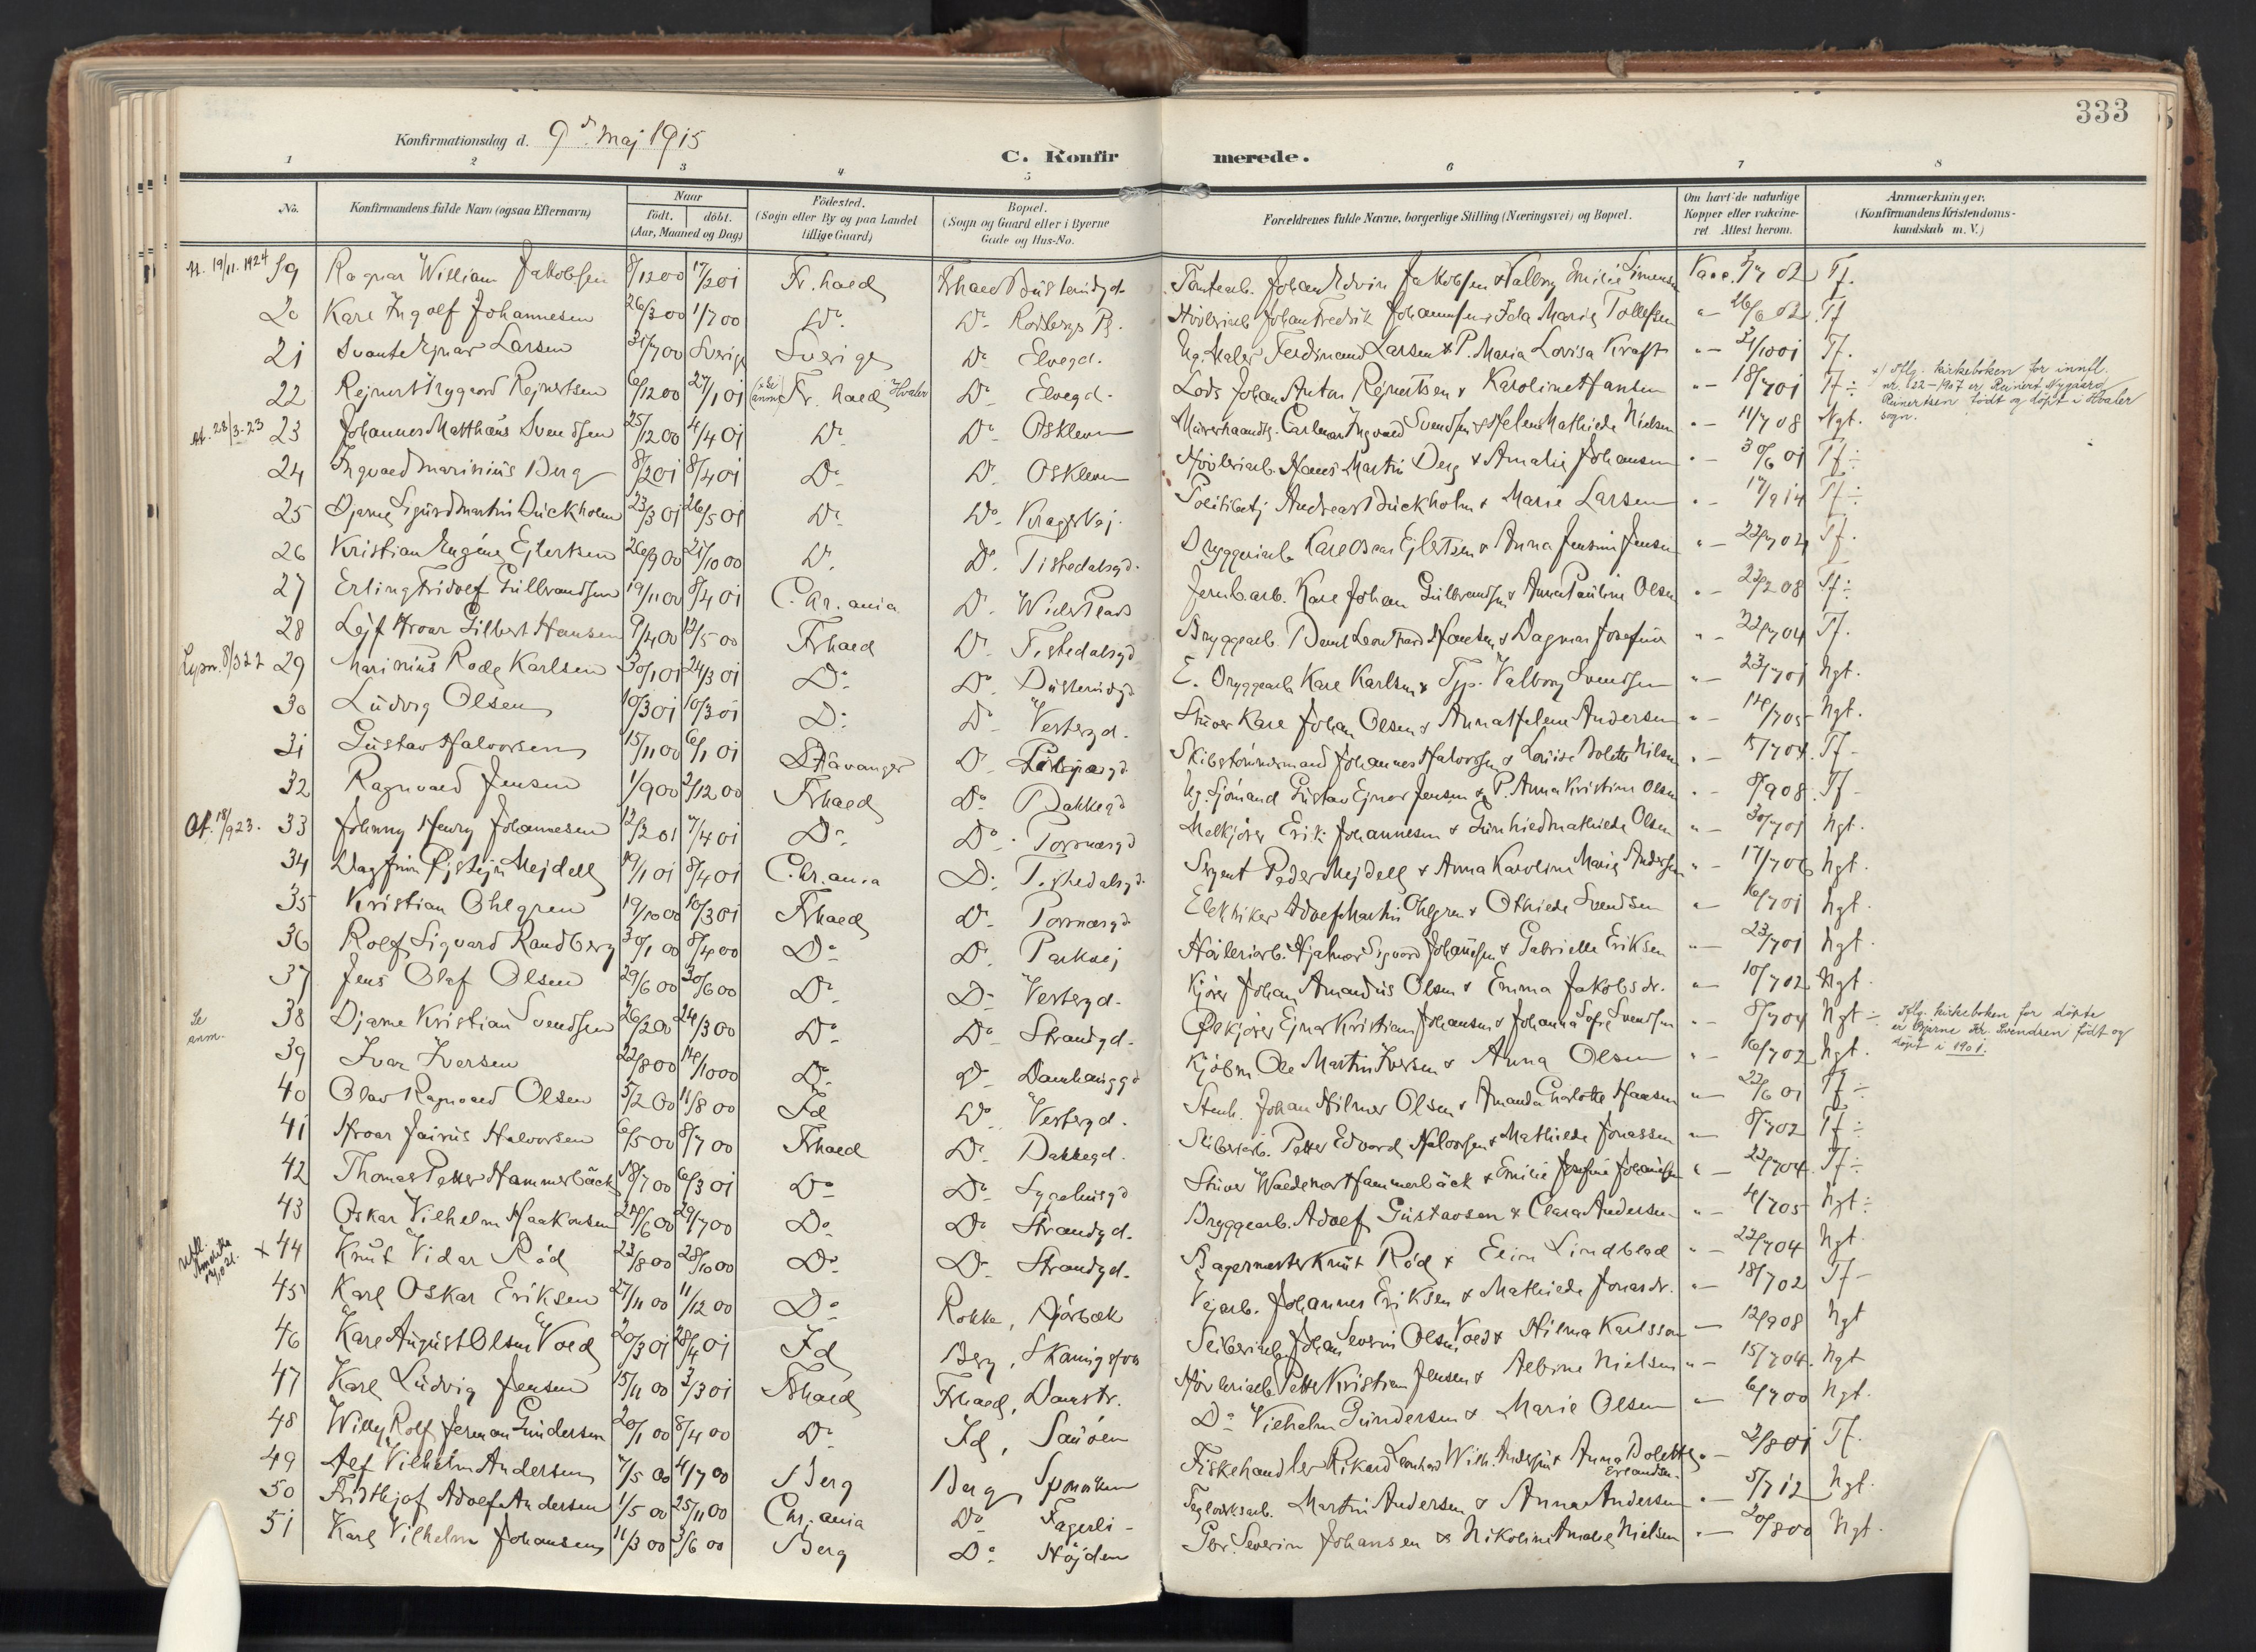 333
Konfirmationsdag d. 9de Maj 1915
C. Konfirmerede.
1 2 3 4 5 6 7 8
No. Konfirmandens fulde Navn (ogsaa Efternavn) Naar født. døbt. (Aar, Maaned og Dag) Fødested. (Sogn eller By og paa Landet tillige Gaard) Bopæl. (Sogn og Gaard eller i Byerne Gade og Hus-No. Forældrenes fulde Navne, borgerlige Stilling (Næringsvei) og Bopæl. Om havt de naturlige Kopper eller vakcineret Attest herom. Anmærkninger. (Konfirmandens Kristendomskundskab m. V.)
19/11. 1924 19 Ragnar William Jakobsen 8/12 00 17/2 01 Fr.hald Johan Edvin Jakobsen & Valborg Emilie Tf.
20 Karl Ingolf Johannesen 26/3 00 1/7 00 Do Do Rødbergs Pl. Høvleriarb. Johan Fredrik Johannesen & Ida Marie Tollefsen 16/6 02 Tf
21 Svante Ejnar Larsen 31/7 00 Sverige Sverige Do Elvegd. Ug. Maler Ferdinand Larsen & P. Maria Lovisa Kraft 31/10 01 Tf.
22 Rejnert Nygaard Rejnertsen 6/12 00 27/1 01 (x Se anm) Fr.hald Hvaler Do Elvegd. Lods Johan Anton Rejnertsen & Karoline Hansen 18/7 01 Tf ÷ x) Iflg. kirkeboken for innfl. nr. 22-1907 er Reinert Nygaard Reinertsen født og døpt i Hvaler sogn.
28/3-23 23 Johannes Matthæus Svendsen 25/12 00 4/4 01 Do Do Oskleven Carl Ingvald Svendsen & Helene Mathilde Nielsen 11/7 08 Ngt.
24 Ingvald Marinius Berg 8/2 01 8/4 01 Do Do Oskleven Høvleriarb. Hans Martin Berg & Amalie Johansen 30/6 01 Tf ÷
25 Bjarne Sigurd Martin Buckholm 23/3 01 26/5 01 Do Do Kragsvej. Politibetj Andreas Buckholm & Marie Larsen 17/9 14 Tf ÷
26 Kristian Eugène Ejlertsen 26/9 00 21/10 00 Do Do Tistedalsgd. Bryggeriarb Karl Oscar Ejlertsen & Anna Jensine Jensen Tf.
27 Erling Fridolf Gulbrandsen 19/11 00 8/4 01 C.hr.ania Do Jernbarb. Karl Johan Gulbrandsen & Anna Pauline Olsen 23/2 08 Tf ÷
28 Lejf Hroar Gilbert Hansen 9/4 00 Frhald Do Tistedalsgd Bryggearb. Bernt Leonhard Hansen & Dagmar Josefine 22/7 04 Tf.
8/3 22 29 Marinius Rode Karlsen 30/1 01 24/3 01 Do Do E. Bryggearb Karl Karlsen & Valborg Svendsen 23/7 01 Ngt.
30 Ludvig Olsen 10/3 01 10/3 01 Do Do Vestergd. Stuver Karl Johan Olsen & Anna Helene Andersen 14/7 05 Ngt.
31 Gustav Halvorsen 15/11 00 6/1 01 Stavanger Do Skibstømmermand Johannes Halvorsen & Louise Bolette Nilsen 15/7 04 Tf -
32 Ragnvald Jensen 1/9 00 2/12 00 Frhald Do Bakkegd Ug. Sjømand Gustav Ejnar Jensen & P. Anna Kristine Olsen 8/9 08 Tf -
Af. 18/9 23. 33 Johnny Henry Johannesen 12/2 01 7/4 01 Do Do Torvnæsgd Melkjører Erik Johannesen & Gunhild Mathilde Olsen 30/7 01 Ngt.
34 Dagfinn Øistejn Mejdell 19/1 01 8/4 01 C.hr.ania Do Tistedalsgd. Sergent Peder Mejdell & Anna Karoline Marie Andersen 17/7 06 Ngt.
35 Kristian Ohlgren 19/10 00 10/3 01 Frhald Do Torvnæsgd Elektriker Adolf Martin Ohlgren & Othilde Svendsen 16/7 01 Ngt.
36 Rolf Sigvard Randberg 30/1 00 8/4 00 Do Do Parkvej Høvleriarb. Hjalmar Sigvard Johansen & Gabrielle Eriksen 23/7 01 Ngt.
37 Jens Olaf Olsen 29/6 00 30/6 00 Do Do Vestergd. Kjører Johan Amandus Olsen & Emma Jakobsdr. 10/7 02 Ngt.
Se anm. 38 Bjarne Kristian Svendsen 26/2 00 24/3 00 Do Do Strandgd. Ølkjører Ejnar Kristian Johansen & Johanna Sofie Svendsen 8/7 04 Ngt ÷ Iflg. kirkeboken for døpte er Bjarne Kr. Svendsen født og døpt i 1901.
39 Ivar Iversen 22/8 00 14/10 00 Do Do Damhauggd Kjøbm Ole Martin Iversen & Anna Olsen 16/7 02 Ngt.
40 Olav Ragnvald Olsen 5/2 00 11/8 00 Id Do Vestergd. Stenh. Johan Hilmer Olsen & Amanda Charlotte Hansen 22/6 01 Tf ÷
41 Hroar Jairus Halvorsen 6/5 00 8/7 00 Frhald Do Bakkegd. Petter Edvard Halvorsen & Mathilde Jonassen 8/7 02 Tf ÷
42 Thomas Petter Hammerbäck 18/7 00 6/3 01 Do Do Sygehusgd Stuver Waldemar Hammerbäck & Emilie Josefine Johansen 22/7 04. Tf ÷
43 Oskar Vilhelm Haakonsen 24/6 00 29/7 00 Do Do Strandgd. Bryggearb. Adolf Gustavsen & Clara Andersen 4/7 05 Ngt ÷
Utfl. Amerika x 44 Knut Vidar Rød 23/8 00 28/10 00 Do Do Strandgd. Bagermester Knut Rød & Elin Lindblad 22/7 04 Ngt.
45 Karl Oskar Eriksen 27/11 00 11/12 00 Do Rokke, Bjørbæk Vejarb. Johannes Eriksen & Mathilde Jonasdr. 18/7 02 Tf -
46 Karl August Olsen Vold 20/3 01 28/4 01 Id Berg, Skaningsfoss Johan Severin Olsen Vold & Hilma Karlsson 12/9 08 Ngt
47 Karl Ludvig Jensen 15/11 00 3/3 01 Frhald Frhald, Damstr. Høvleriarb. Petter Kristian Jensen & Albine Nielsen 15/7 04. Ngt
48 Willy Rolf Herman Gundersen 20/1 00 8/4 00 Do Id, Sauøen Do Vilhelm Gundersen & Marie Olsen 6/7 00 Ngt.
49 Alf Vilhelm Andersen 7/5 00 4/7 00 Berg Berg, Sponviken Fiskehandler Rikard Leonhard Wilh. Andersen & Anna Bolette Erlandsen 2/8 01 Tf.
50 Fridthjof Adolf Andersen 1/5 00 25/11 00 Chr.ania Do Fagerli - Teglverksarb. Martin Andersen & Anna Andersen 5/7 12 Ngt.
51 Karl Vilhelm Johansen 11/3 00 3/6 00 Berg Do Højden Gbr. Severin Johansen & Nikoline Amalie Nielsen 20/8 00 Ngt.